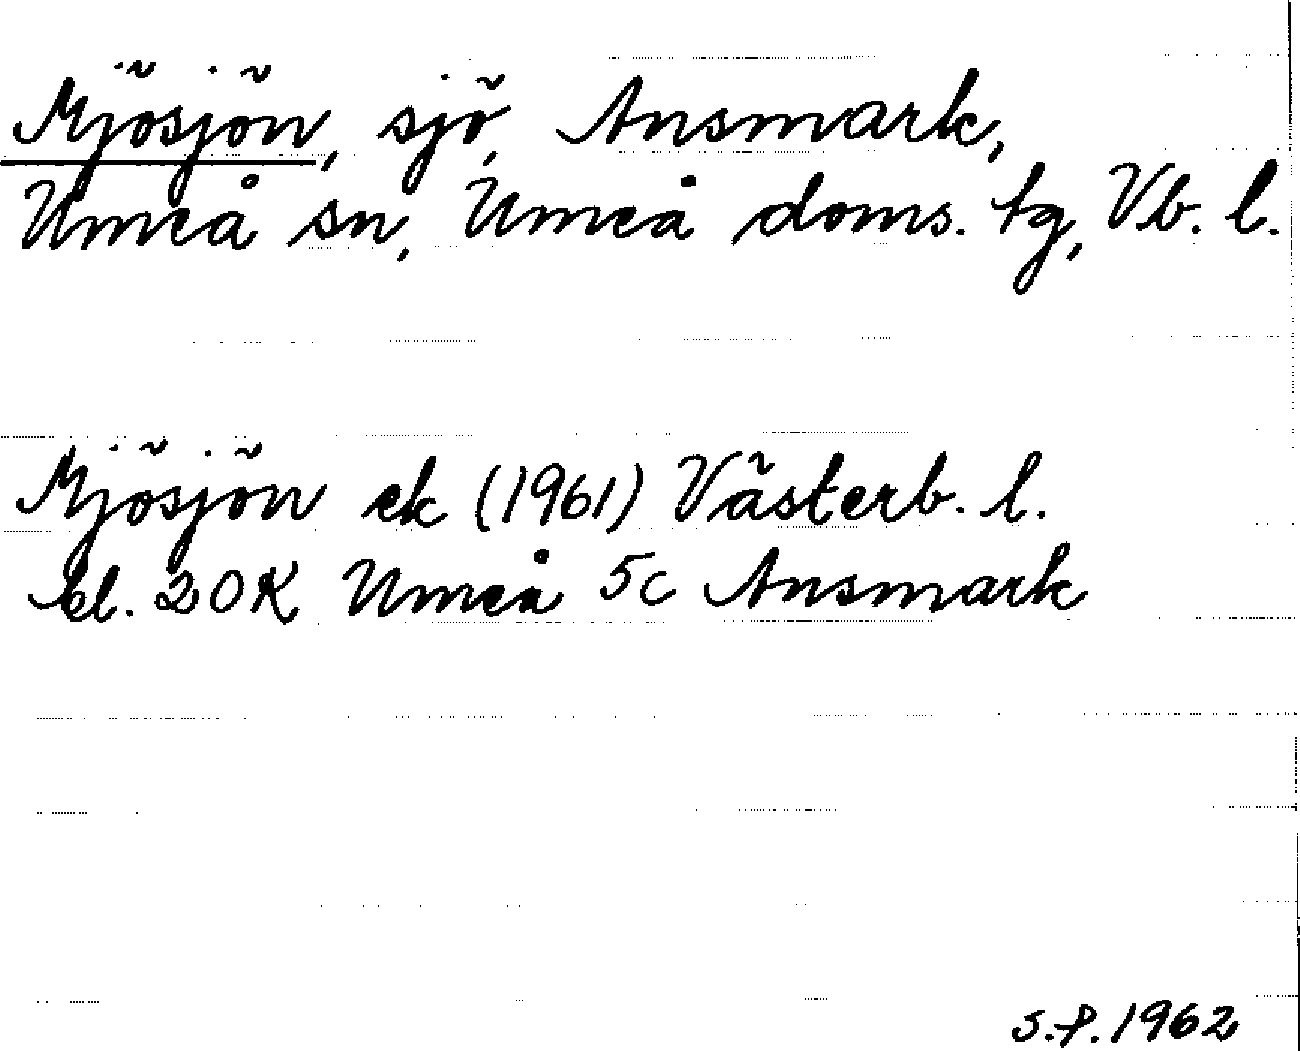 Mjösjön, sjö, Ansmark,
Umeå sn, Umeå doms. tg, Vb. l.
Mjösjön ek (1961) Västerb. l.
bl. 20K Umeå 5c Ansmark
S.P. 1962